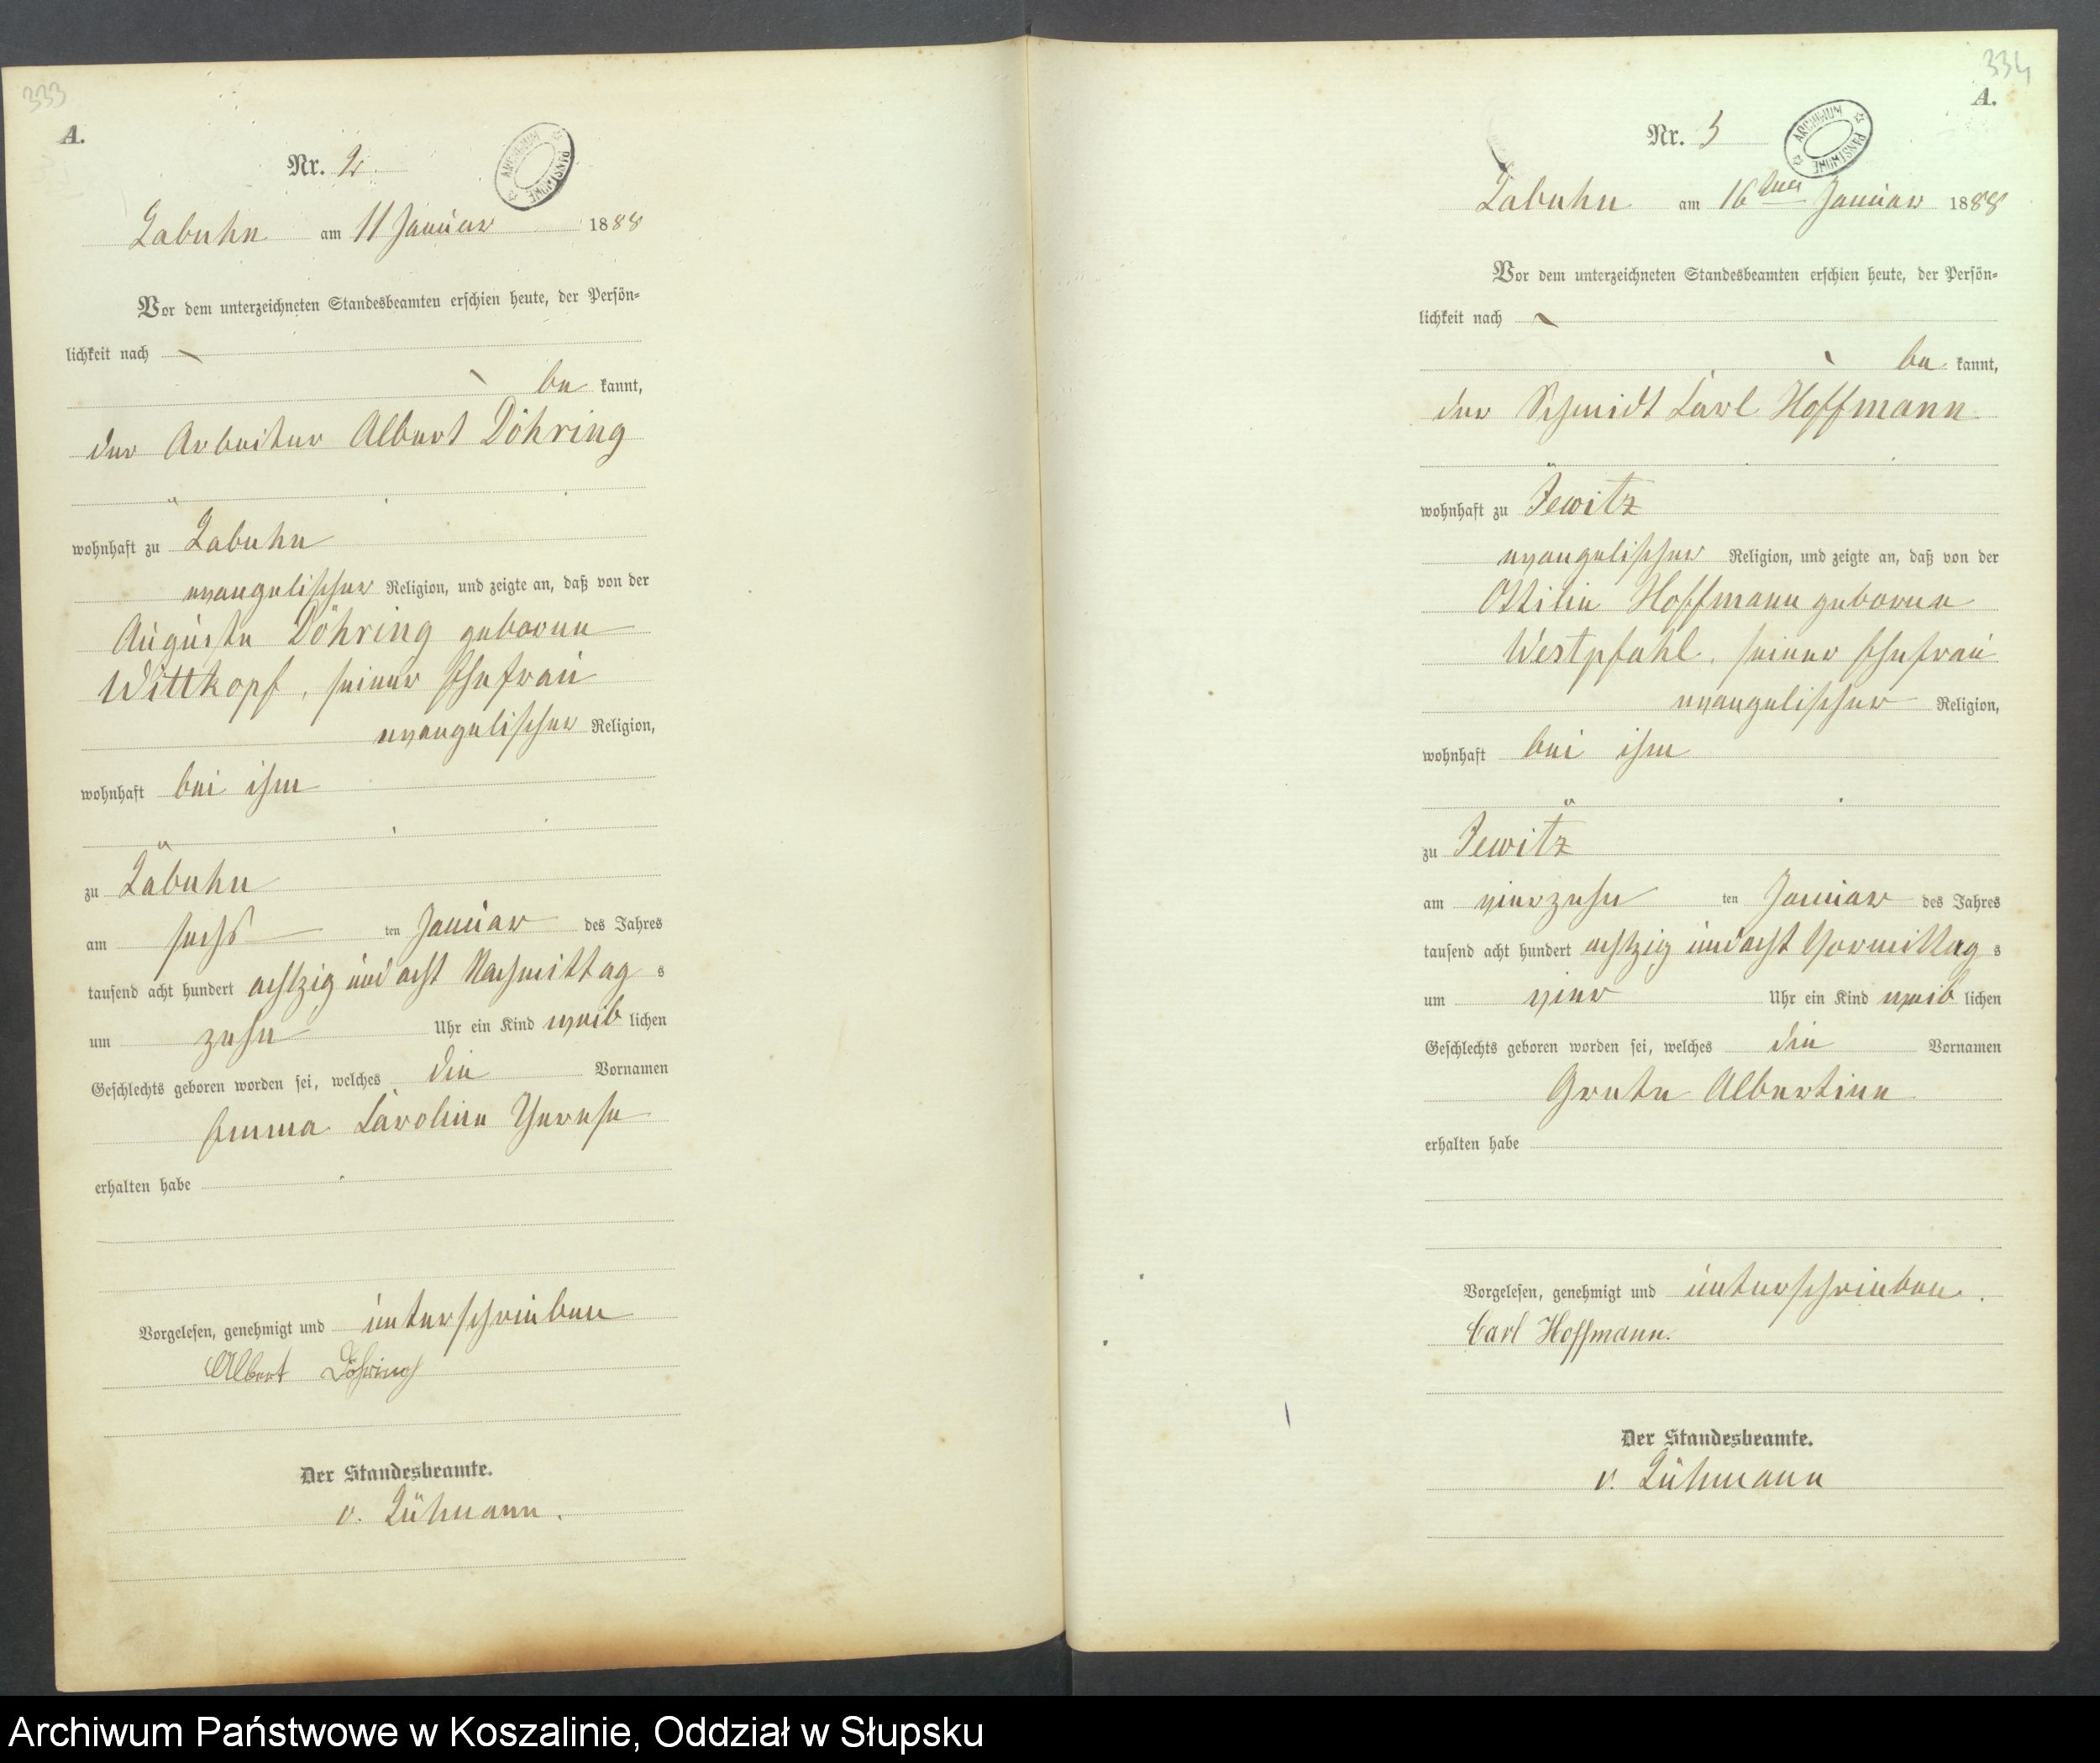 333
A.
Nr. 2.
ARCHIWUM PAŃSTWOWE
Labuhn am 11 Januar 1888
Vor dem unterzeichneten Standesbeamten erschien heute, der Persön-
lichkeit nach
be kannt,
der Arbeiter Albert Döhring
wohnhaft zu Labuhn
evangelischer Religion, und zeigte an, daß von der
Auguste Döhring geborene
Wittkopf, seiner Ehefrau
evangelischer Religion,
wohnhaft bei ihm
zu Labuhn
am sechs ten Januar des Jahres
tausend acht hundert achtzig und acht Nachmittag s
um zehn Uhr ein Kind weib lichen
Geschlechts geboren worden sei, welches die Vornamen
Emma Caroline Therese
erhalten habe
Vorgelesen, genehmigt und unterschrieben
Albert Döhring
Der Standesbeamte.
v. Lühmann.
334
A.
Nr. 3
ARCHIWUM PAŃSTWOWE
Labuhn am 16ten Januar 1888
Vor dem unterzeichneten Standesbeamten erschien heute, der Persön-
lichkeit nach
be kannt,
der Schmidt Carl Hoffmann
wohnhaft zu Jewitz
evangelischer Religion, und zeigte an, daß von der
Ottilie Hoffmann geborene
Westpfahl, seiner Ehefrau
evangelischer Religion,
wohnhaft bei ihm
zu Jewitz
am vierzehn ten Januar des Jahres
tausend acht hundert achtzig und acht Vormittag s
um vier Uhr ein Kind weib lichen
Geschlechts geboren worden sei, welches die Vornamen
Grete Albertine
erhalten habe
Vorgelesen, genehmigt und unterschrieben.
Carl Hoffmann.
Der Standesbeamte.
v. Lühmann
Archiwum Państwowe w Koszalinie, Oddział w Słupsku